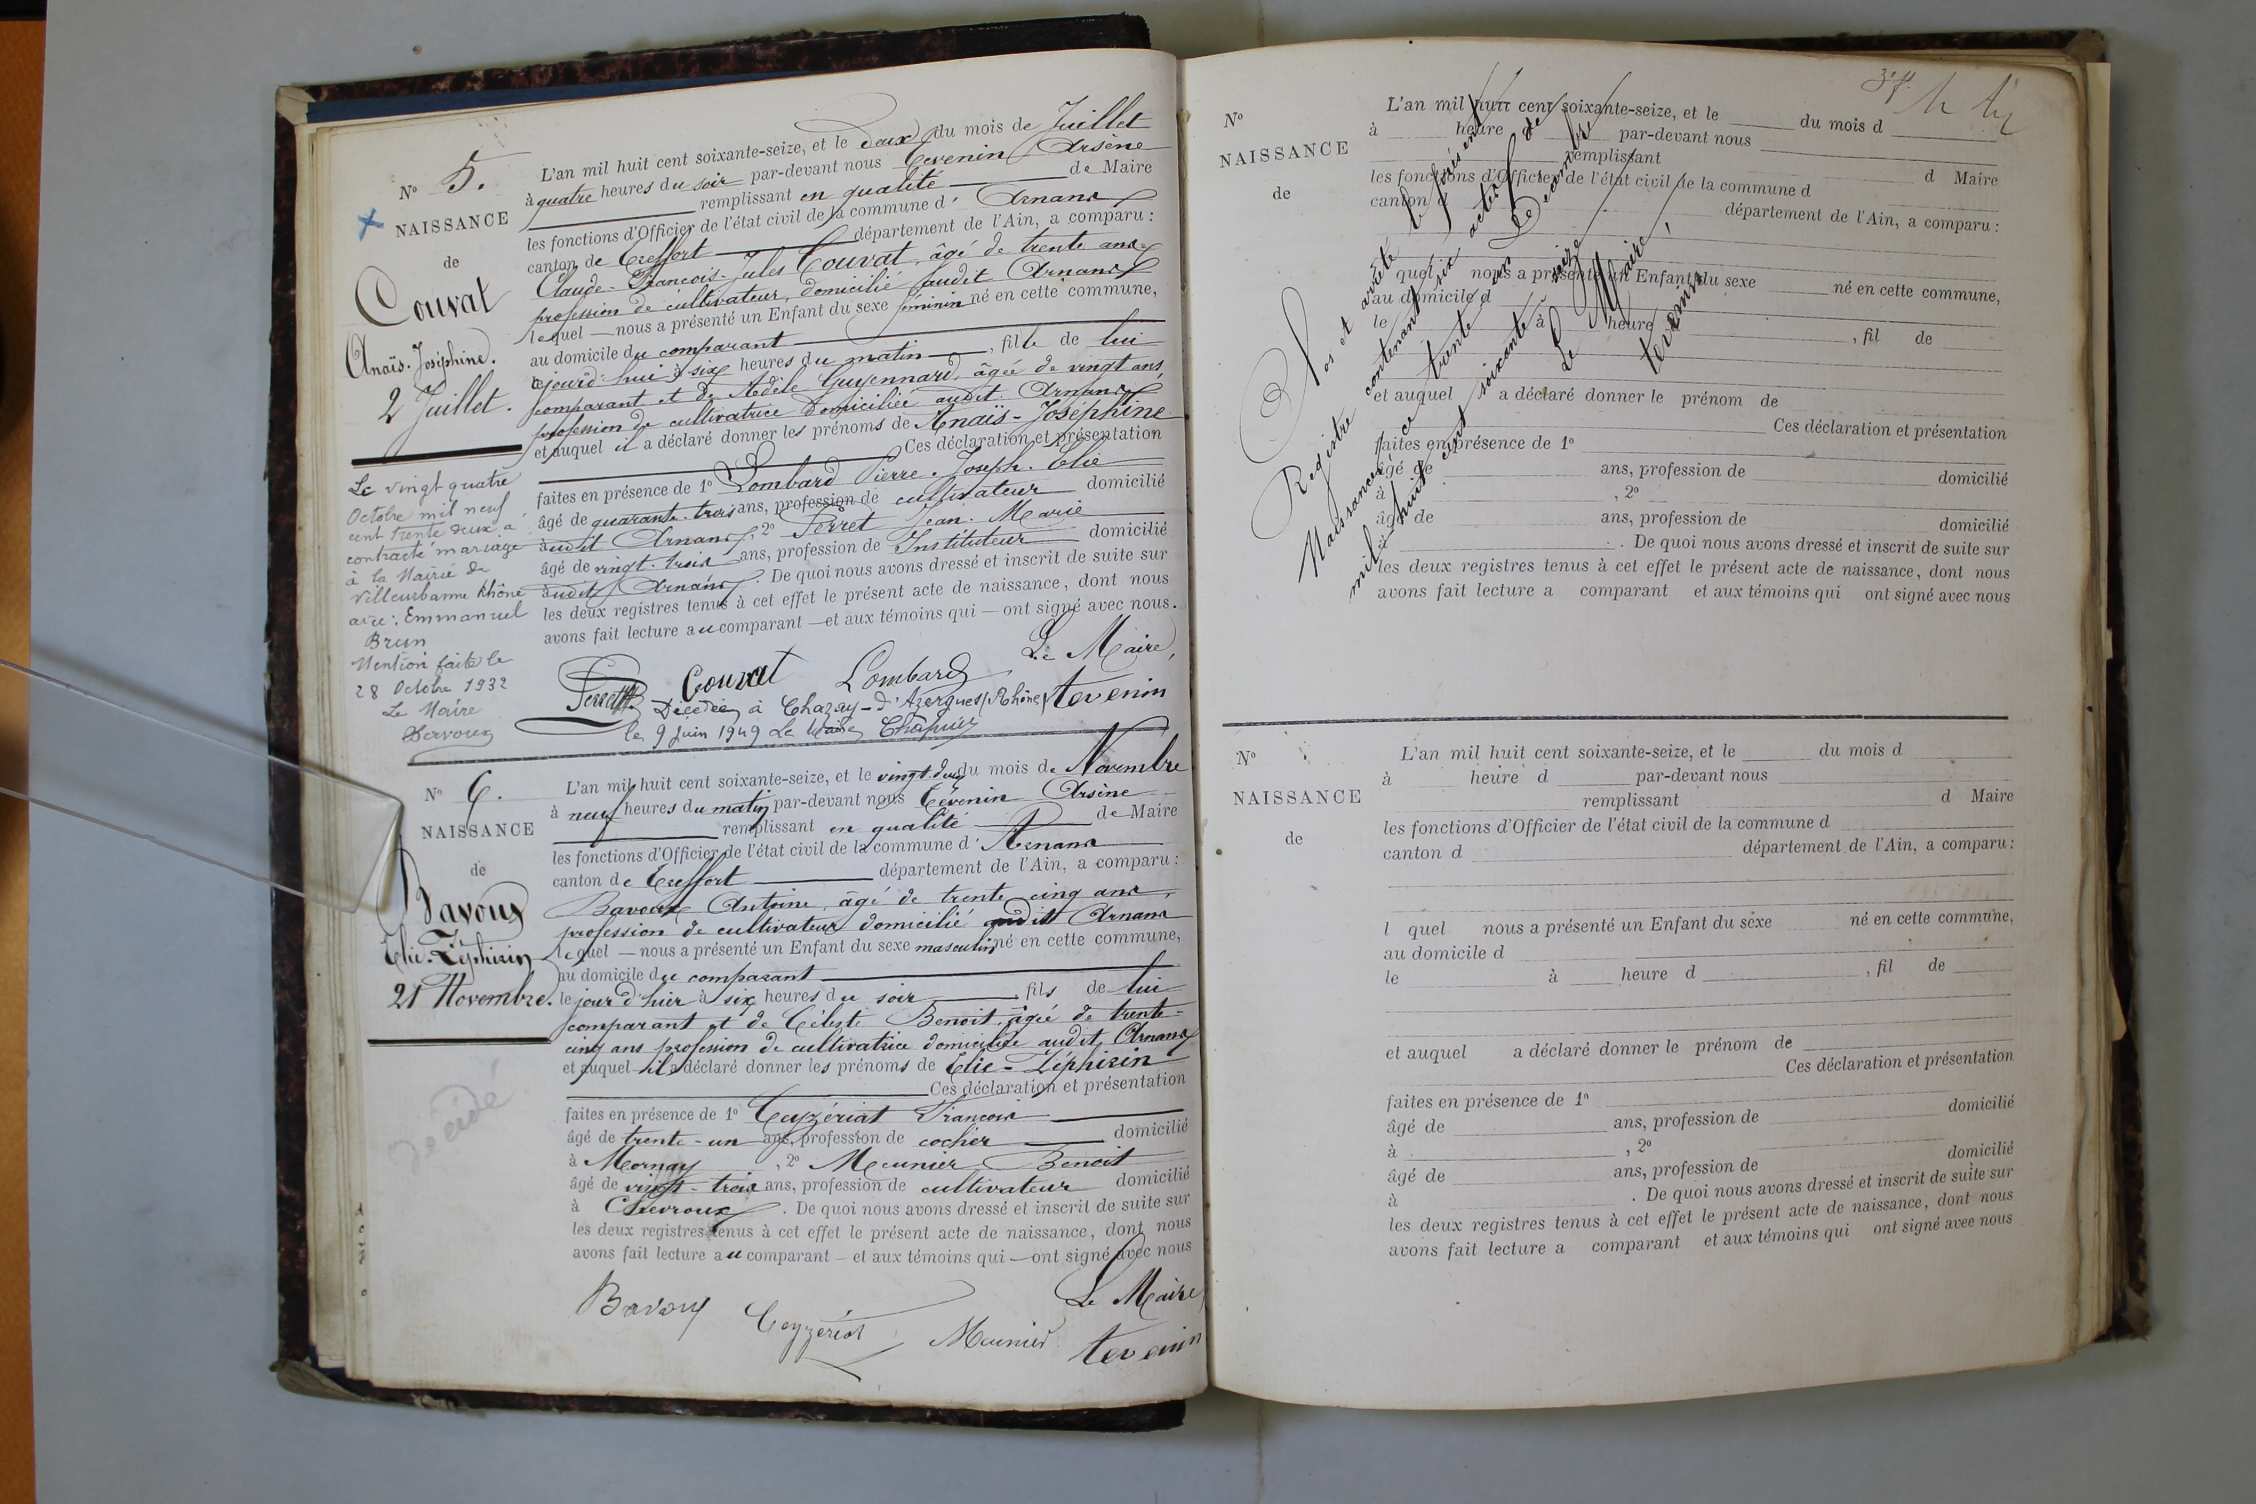 N° 5.
NAISSANCE
de
Couvat
Anaïs-Joséphine.
2 Juillet.
L'an mil huit cent soixante-seize, et le deux du mois de Juillet
à quatre heures du soir par-devant nous Tevenin Arsène
remplissant en qualité de Maire
les fonctions d'Officier de l'état civil de la commune d' Arnans
canton de Treffort département de l'Ain, a comparu :
Claude-François-Jules Couvat, âgé de trente ans
profession de cultivateur, domicilié audit Arnans
lequel nous a présenté un Enfant du sexe féminin né en cette commune,
au domicile du comparant
cejourd'hui à six heures du matin, fille de lui
comparant et de Adèle Guyennard, âgée de vingt ans,
profession de cultivatrice domiciliée audit Arnans
et auquel il a déclaré donner les prénoms de Anaïs-Joséphine
Ces déclaration et présentation
faites en présence de 1° Lombard Pierre-Joseph-Elie
âgé de quarante-trois ans, profession de cultivateur domicilié
audit Arnans, 2° Perret Jean-Marie
âgé de vingt-trois ans, profession de Instituteur domicilié
audit Arnans. De quoi nous avons dressé et inscrit de suite sur
les deux registres tenus à cet effet le présent acte de naissance, dont nous
avons fait lecture au comparant et aux témoins qui ont signé avec nous.
Le Maire,
Perret Couvat Lombard
tevenin
Décédée à Chazay-d'Azergues (Rhône)
le 9 juin 1949 Le Maire
Le vingt quatre
Octobre mil neuf
cent trente deux a
contracté mariage
à la Mairie de
Villeurbanne Rhône
avec : Emmanuel
Brun
Mention faite le
28 Octobre 1932
Le Maire
Dervoux
N° 6.
NAISSANCE
de
Bavoux
Elie-Zéphirin
21 Novembre.
décédé
L'an mil huit cent soixante-seize, et le vingt-deux du mois de Novembre
à neuf heures du matin par-devant nous Tevenin Arsène
remplissant en qualité de Maire
les fonctions d'Officier de l'état civil de la commune d' Arnans
canton de Treffort département de l'Ain, a comparu :
Bavoux Antoine, âgé de trente cinq ans,
profession de cultivateur domicilié audit Arnans
lequel nous a présenté un Enfant du sexe masculin né en cette commune,
au domicile du comparant
le jour d'hier à six heures du soir, fils de lui
comparant et de Céleste Benoit, âgée de trente-
cinq ans profession de cultivatrice domiciliée audit Arnans
et auquel il a déclaré donner les prénoms de Elie-Zéphirin
Ces déclaration et présentation
faites en présence de 1° Ceyzériat François
âgé de trente-un ans, profession de cocher domicilié
à Mornay, 2° Meunier Benoit
âgé de vingt-trois ans, profession de cultivateur domicilié
à Chevroux. De quoi nous avons dressé et inscrit de suite sur
les deux registres tenus à cet effet le présent acte de naissance, dont nous
avons fait lecture au comparant et aux témoins qui ont signé avec nous
Le Maire,
Bavoux Ceyzériat Meunier
tevenin
N°
NAISSANCE
de
L'an mil huit cent soixante-seize, et le du mois d
à heure par-devant nous
remplissant d Maire
les fonctions d'Officier de l'état civil de la commune d
canton d département de l'Ain, a comparu :
l quel nous a présenté un Enfant du sexe né en cette commune,
au domicile d
le à heure , fil de
et auquel a déclaré donner le prénom de
Ces déclaration et présentation
faites en présence de 1°
âgé de ans, profession de domicilié
à , 2°
âgé de ans, profession de domicilié
à . De quoi nous avons dressé et inscrit de suite sur
les deux registres tenus à cet effet le présent acte de naissance, dont nous
avons fait lecture a comparant et aux témoins qui ont signé avec nous
Clos et arrêté le présent
Registre contenant six actes de
Naissances, ce trente un Décembre
mil-huit cent soixante seize
Le Maire,
tevenin
N°
NAISSANCE
de
L'an mil huit cent soixante-seize, et le du mois d
à heure d par-devant nous
remplissant d Maire
les fonctions d'Officier de l'état civil de la commune d
canton d département de l'Ain, a comparu :
l quel nous a présenté un Enfant du sexe né en cette commune,
au domicile d
le à heure d , fil de
et auquel a déclaré donner le prénom de
Ces déclaration et présentation
faites en présence de 1°
âgé de ans, profession de domicilié
à , 2°
âgé de ans, profession de domicilié
à . De quoi nous avons dressé et inscrit de suite sur
les deux registres tenus à cet effet le présent acte de naissance, dont nous
avons fait lecture a comparant et aux témoins qui ont signé avec nous